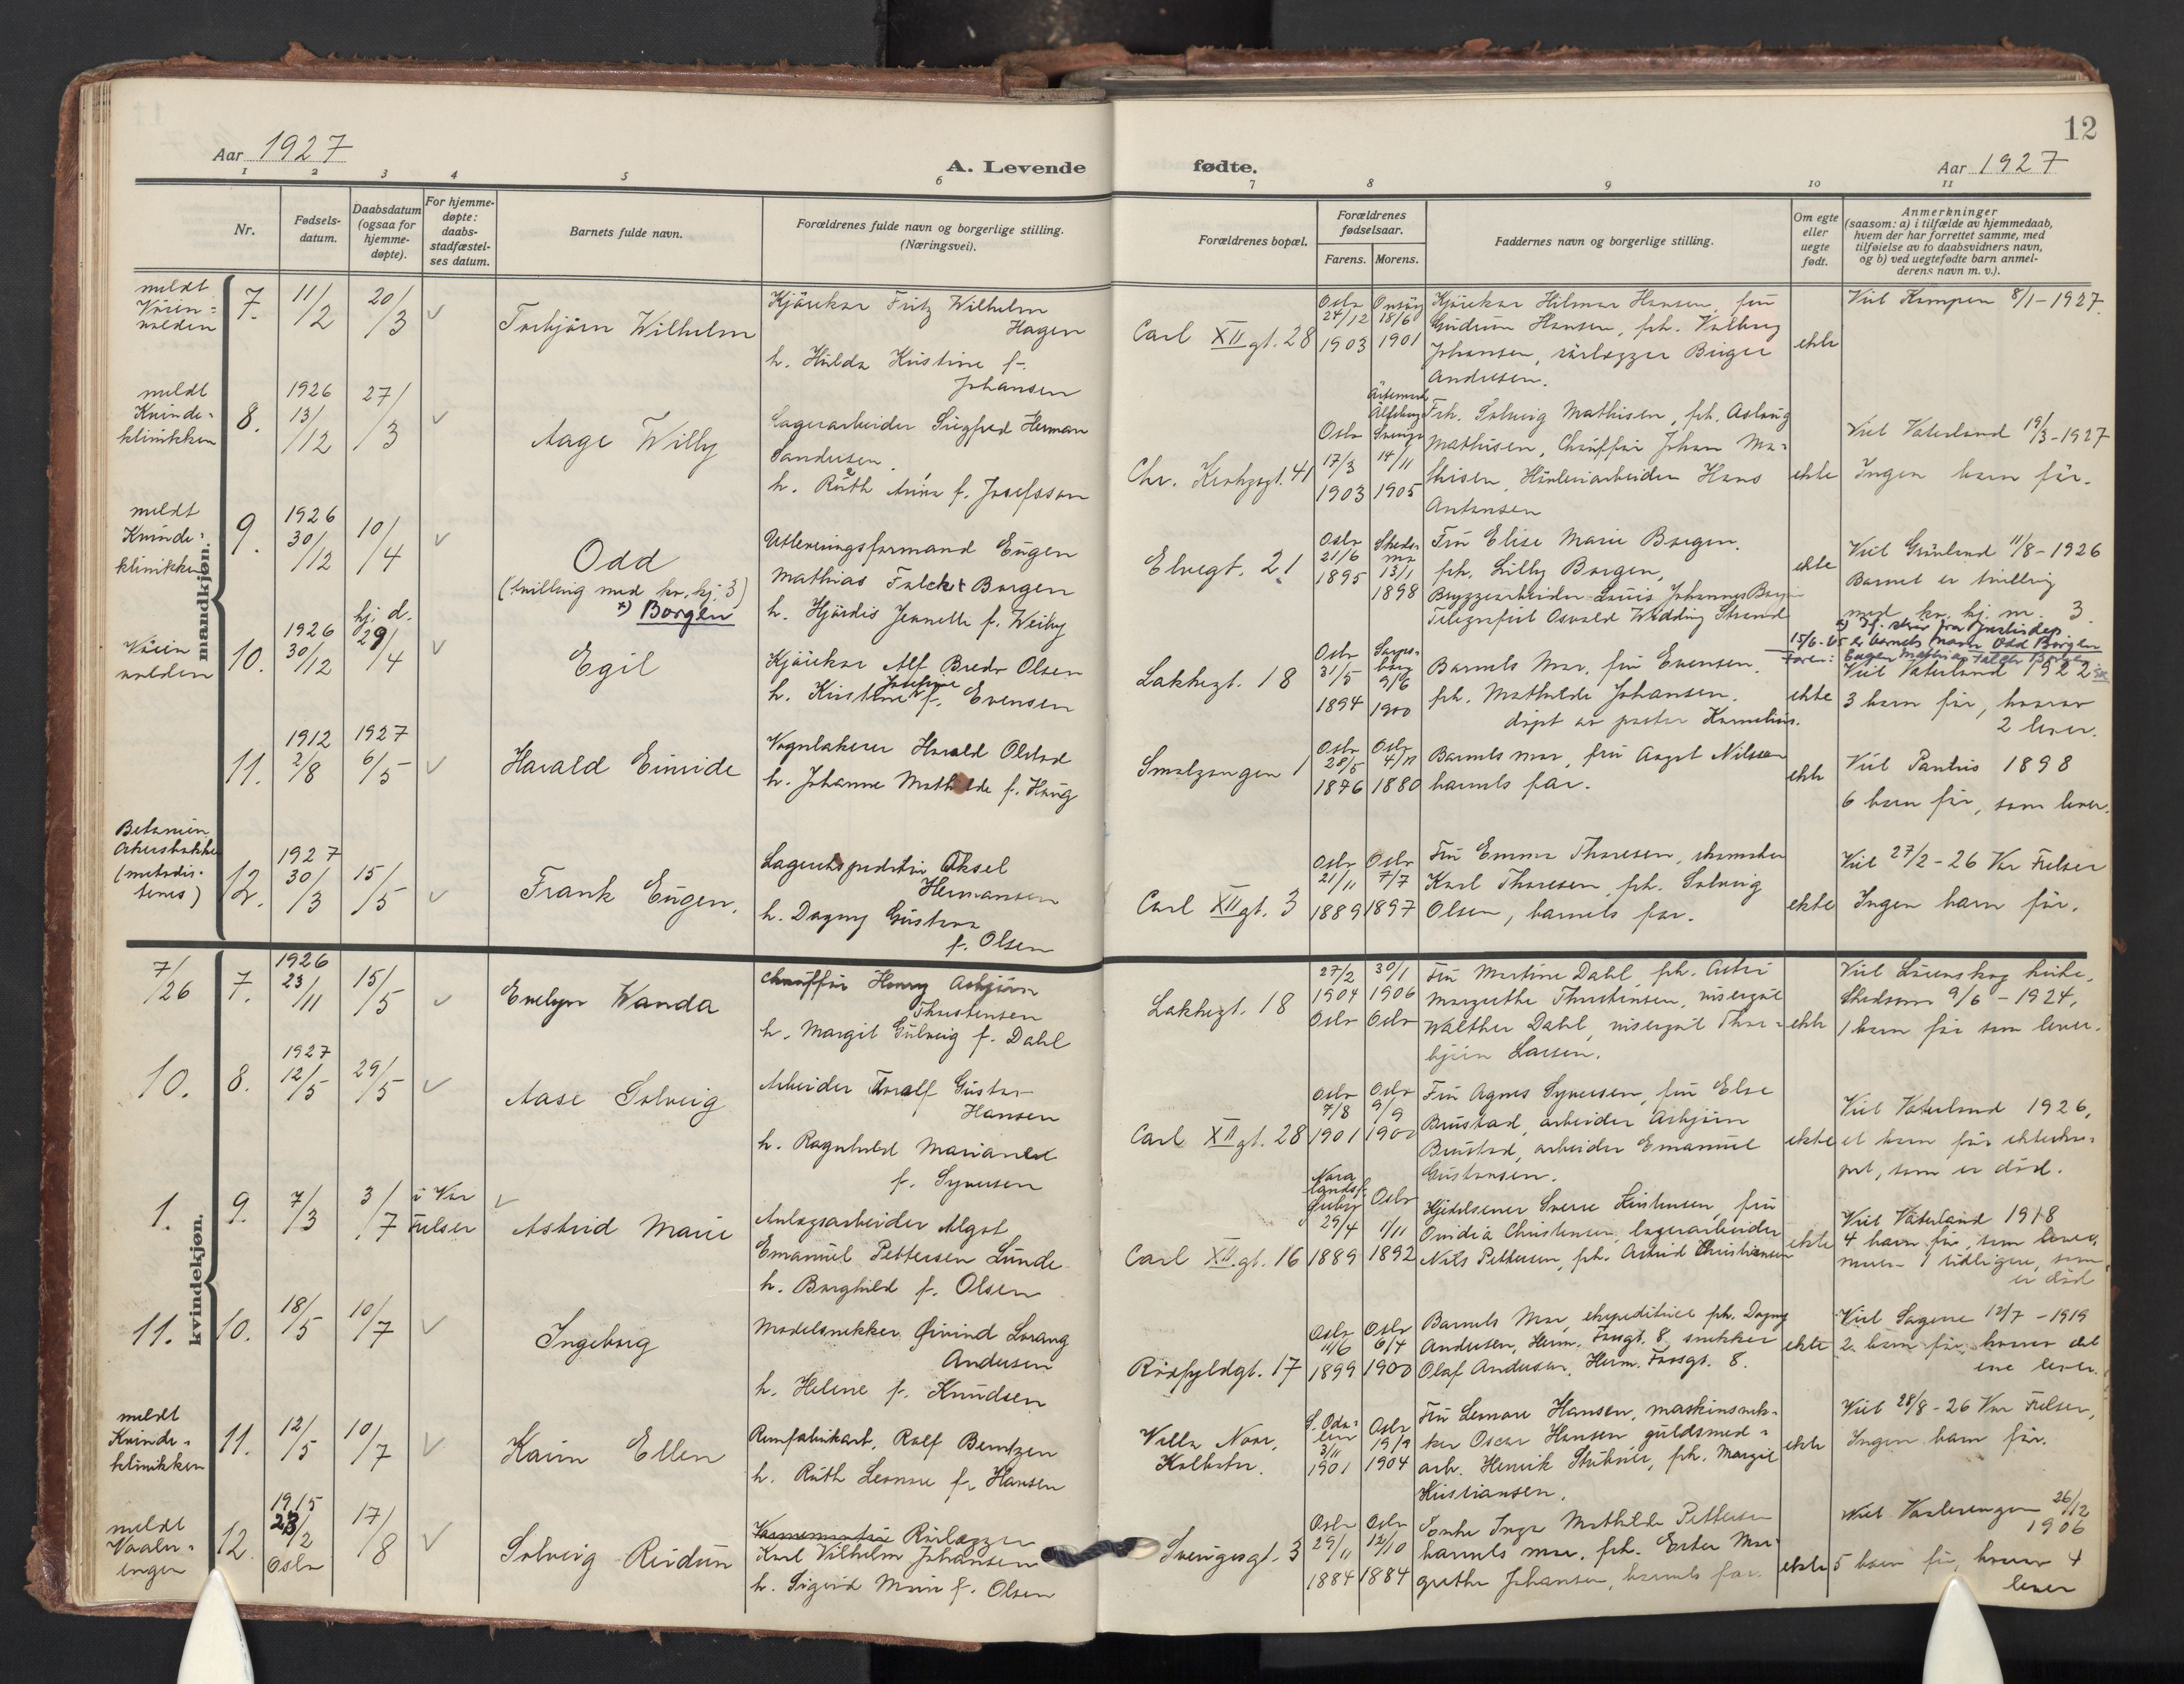 12
Aar 1927
A. Levende
fødte.
Aar 1927
1 2 3 4 5 6 7 8 9 10 11
Nr.
Fødsels-
datum.
Daabsdatum
(ogsaa for
hjemme-
døpte).
For hjemme-
døpte:
daabs-
stadfæstel-
ses datum.
Barnets fulde navn.
Forældrenes fulde navn og borgerlige stilling.
(Næringsvei).
Forældrenes bopæl.
Forældrenes
fødselsaar.
Farens. Morens.
Faddernes navn og borgerlige stilling.
Om egte
eller
uegte
født.
Anmerkninger
(saasom: a) i tilfælde av hjemmedaab,
hvem der har forrettet samme, med
tilføielse av to daabsvidners navn,
og b) ved uegtefødte barn anmel-
derens navn m. v.).
mandkjøn.
meldt
7.
11/2
20/3
Torbjørn Wilhelm
Kjørekar Fritz Wilhelm
Hagen
h. Hulda Kristine f.
Johansen
Carl XII gt. 28
Oslo
24/12
1903
18/6
1901
Kjørekar Hilmar Hansen, fru
Gudrun Hansen, frk. Valborg
Johansen, rørlægger Birger
Andresen.
ekte
Viet Kampen 8/1-1927.
meldt
Kvinde-
klinikken
8.
1926
13/12
27/3
Aage Willy
Lagerarbeider Sigfred Herman
Sandersen
h. Ruth Anna f. Josefsson
Chr. Krohgsgt. 41
Oslo
17/3
1903
14/11
1905
Frk. Solveig Mathisen, frk. Aslaug
Mathisen, Chauffør Johan Ma-
thisen, Hønseriarbeider Hans
Antonsen
ekte
Viet Vaterland 19/3-1927
Ingen barn før.
meldt
Kvinde-
klinikken
9.
1926
30/12
10/4
Odd
(tvilling med kv. kj. 3)
x) Borgen
Utleveringsformand Eugen
Mathias Falck Borgen
h. Hjørdis Jeanette f. Weiby
Elvegt. 21
Oslo
21/6
1895
Skeds-
mo
13/1
1898
Fru Elise Marie Borgen.
frk. Lilly Borgen,
Bryggearbeider Louis Johannes Borgen
Telegrafist Osvald Wedding Strand
ekte
Viet Grønland 11/8-1926
Barnet er tvilling
med kv. kj. nr. 3.
barnets navn Odd Borgen
10.
1926
30/12
hj. d.
29/4
Egil
Kjørekar Alf Bredo Olsen
h. Kristine Josefine f. Evensen
Lakkegt. 18
Oslo
31/5
1894
Sarps-
borg
9/6
1900
Barnets Mor, fru Evensen.
frk. Mathilde Johansen.
døpt av pastor Kornelius.
ekte
Viet Vaterland 1922
3 barn før, hvorav
2 lever.
11.
1912
2/8
1927
6/5
Harald Einride
Vognlakerer Harald Olstad
h. Johanne Mathilde f. Haug
Smalgangen 1
Oslo
28/5
1876
Oslo
4/11
1880
Barnets mor, fru Aagot Nilssen
barnets far.
ekte
Viet Paulus 1898
6 barn før, som lever.
Betanien
Akersbakken
(metodis-
tenes)
12.
1927
30/3
15/5
Frank Eugen.
Lagerekspeditør Aksel
Hermansen
h. Dagny Gustava
f. Olsen
Carl XII gt. 3
Oslo
21/11
1889
Oslo
7/7
1897
Fru Emma Thoresen, skomaker
Karl Thoresen, frk. Solveig
Olsen, barnets far.
ekte
Viet 27/2-26 Vor Frelser
Ingen barn før.
kvindekjøn.
7/26
7.
1926
23/11
15/5
Evelyn Wanda
Chauffør Henry Asbjørn
Thorstensen
h. Margit Gulveig f. Dahl
Lakkegt. 18
27/2
1904
Oslo
30/1
1906
Oslo
Fru Martine Dahl, frk. Astri
Margrethe Thorstensen, visergut
Walther Dahl, visergut Thor-
bjørn Larsen.
ekte
Viet Lørenskog kirke,
Skedsmo 9/6-1924,
1 barn før som lever.
10.
8.
1927
12/5
29/5
Aase Solveig
Arbeider Toralf Gustav
Hansen
h. Ragnhild Marianne
f. Syversen
Carl XII gt. 28
Oslo
7/8
1901
Oslo
9/9
1900
Fru Agnes Syversen, fru Else
Brustad, arbeider Asbjørn
Brustad, arbeider Emanuel
Gustavsen.
ekte
Viet Vaterland 1926,
et barn før ekteska-
pet, som er død.
1.
9.
7/3
3/7
i Vor
Frelser
Astrid Marie
Anlægsarbeider Algot
Emanuel Pettersen Lunde
h. Borghild f. Olsen
Carl XII gt. 16
29/4
1889
Oslo
1/11
1892
Hjelpesener Sverre Kristensen, fru
Ovidia Christensen, lagerarbeider
Nils Pettersen, frk. Astrid Christiansen
ekte
Viet Vaterland 1918
4 barn før, som lever,
moren 1 tidligere, som
er død
11.
10.
18/5
10/7
Ingeborg
Modelsnekker Øivind Lorang
Andersen
h. Helene f. Knudsen
Rosfyldgt. 17
Oslo
11/6
1899
Oslo
6/4
1900
Barnets Mor, ekspeditrice frk. Dagny
Andersen, Herm. Fossgt. 8, snekker
Olaf Andersen, Herm. Fossgt. 8.
ekte
Viet Sagene 12/7-1919
2 barn før, hvorav det
ene lever.
meldt
Kvinde-
klinikken
11.
12/5
10/7
Karin Ellen
Remfabrikarb. Rolf Berntzen
h. Ruth Leonore f. Hansen
Villa Noor,
Kolbotn.
S. Oda-
len
3/11
1901
Oslo
19/9
1904
Fru Leonore Hansen, maskinsnek-
ker Oscar Hansen guldsmed-
arb. Henrik Stubsrie, frk. Margit
Kristiansen.
ekte
Viet 28/8-26 Vor Frelser,
Ingen barn før.
meldt
Vaaler-
engen
12.
1915
23/2
Oslo
17/8
Solveig Reidun
Rørlægger
Karl Vilhelm Johansen
h. Sigrid Marie f. Olsen
Sverigesgt. 3
Oslo
29/11
1884
Oslo
12/10
1884
Enke Inga Mathilde Pettersen
barnets mor, frk. Ester Mar-
grethe Johansen, barnets far.
ekte
Viet Vaalerengen 26/12
1906
5 barn før, hvorav 4
lever